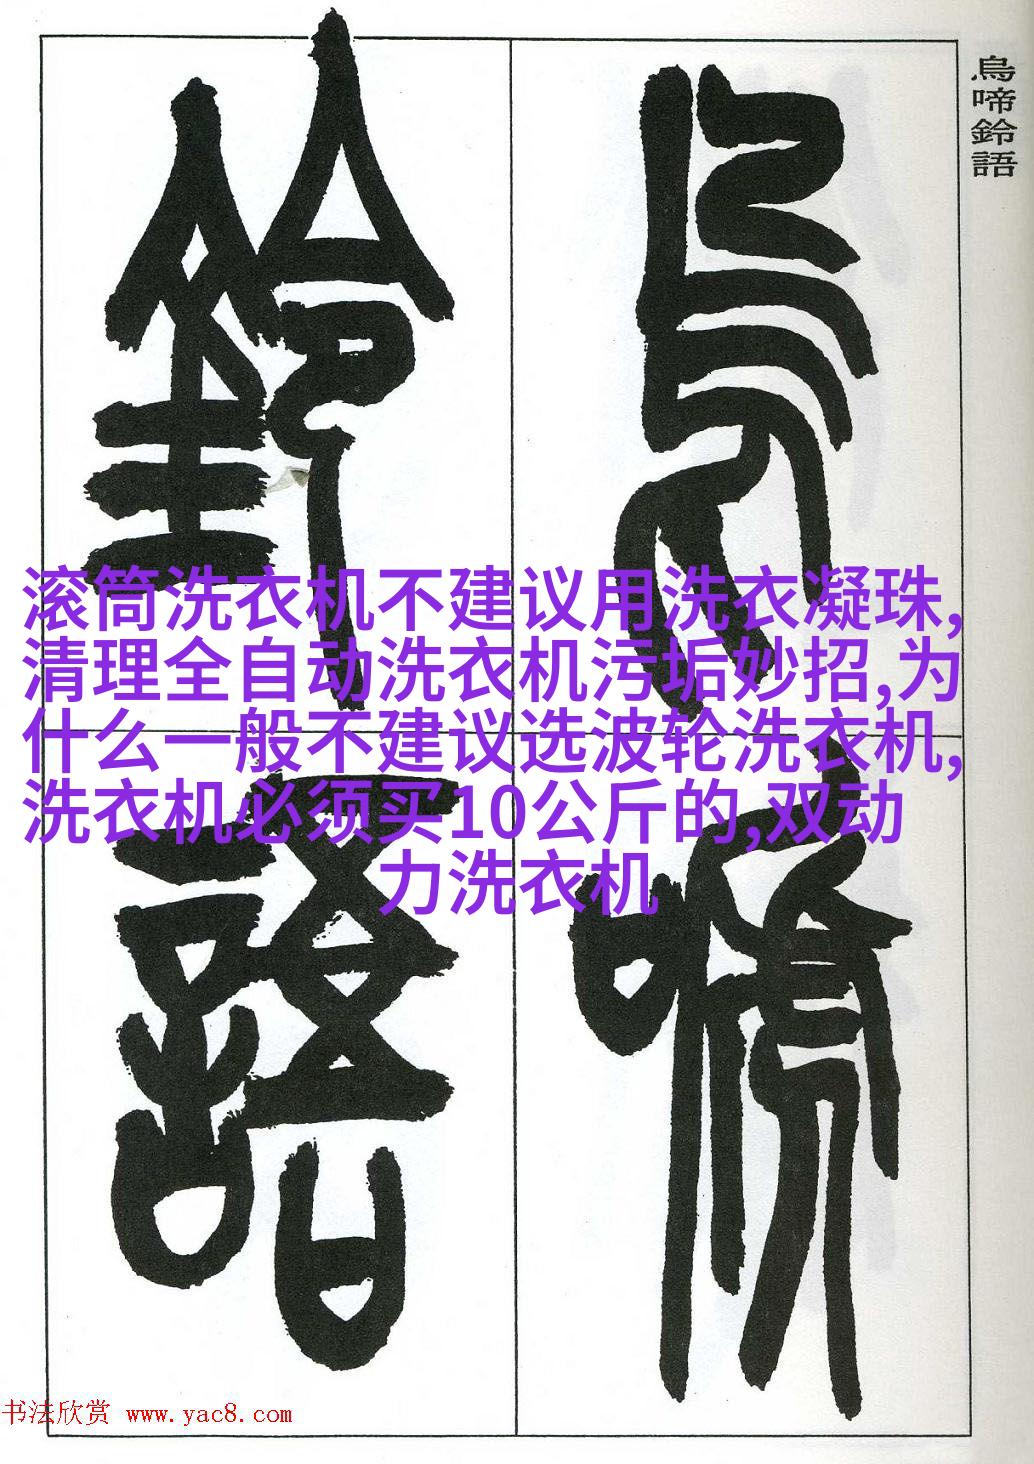 烏啼鈴語
烏啼
鈴語
滚筒洗衣机不建议用洗衣凝珠,
清理全自动洗衣机污垢妙招,为
什么一般不建议选波轮洗衣机,
洗衣机必须买10公斤的,双动
力洗衣机
书法欣赏 www.yac8.com